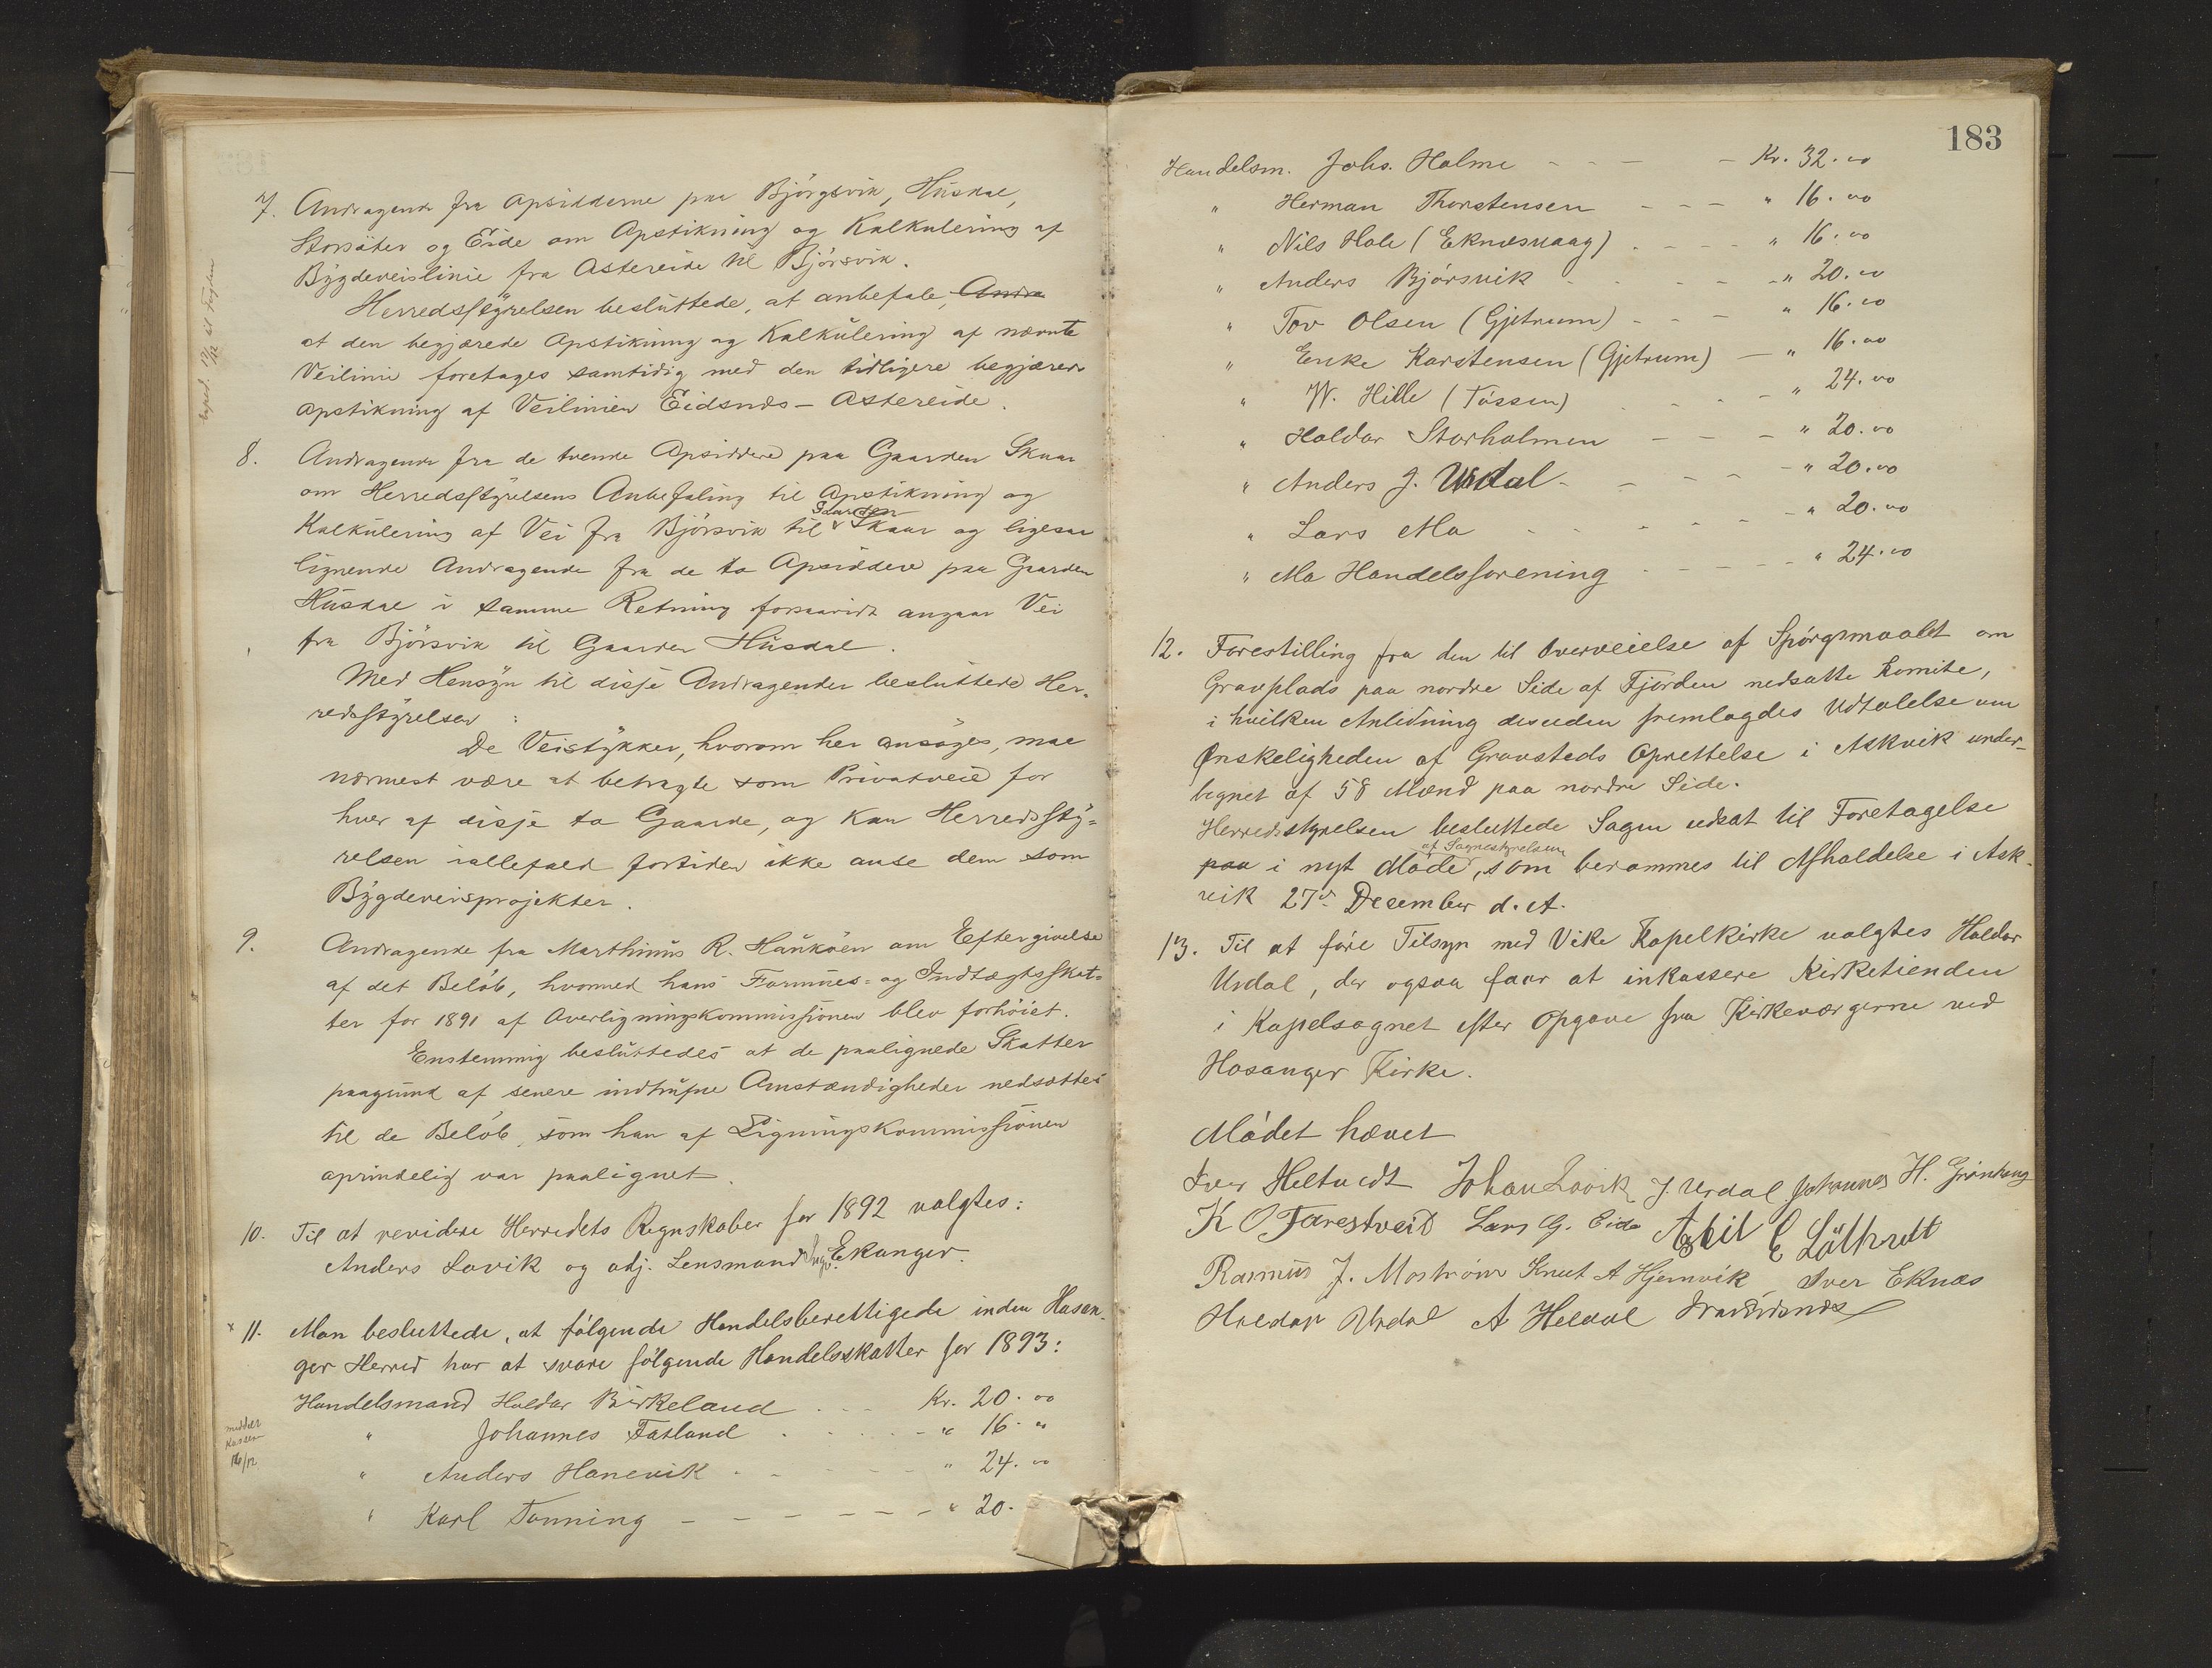 7. Andragende fra Opsidderne paa Bjørgsvik, Husdal,
Storsäter og Eide om Opstikning og Kalkulering af
Bygdeveislinie fra Astereide til Bjørsvik.
Herredsstyrelsen besluttede, at anbefale, Andra
at den begjærede Opstikning og Kalkulering af nævnte
Veilinie foretages samtidig med den tidligere begjærede
Opstikning af Veilinien Eidsnes - Astereide.
exped. 12/12 til Fogden
8. Andragende fra de tvende Opsiddere paa Gaarden Skaar
om Herredsstyrelsens Anbefaling til Opstikning og
Kalkulering af Vei fra Bjørsvik til Gaarden Skaar og ligesaa
lignende Andragende fra de to Opsiddere paa Gaarden
Husdal i samme Retning forsaavidt angaar Vei
fra Bjørsvik til Gaarden Husdal.
Med Hensyn til disse Andragender besluttede Her-
redsstyrelsen:
De Veistykker, hvorom her ansøges, maa
nærmest være at betragte som Privatveie for
hver af disse to Gaarde, og kan Herredssty-
relsen iallefald fortiden ikke anse dem som
Bygdeveisprojekter.
9. Andragende fra Marthinus R. Haukøen om Eftergivelse
af det Beløb, hvormed hans Formues- og Indtægtsskat-
ter for 1891 af Overligningskommissionen blev forhøiet.
Enstemmig besluttedes at de paalignede Skatter
paagrund af senere indtrufne Omstændigheder nedsættes
til de Beløb, som han af Ligningskommissionen
oprindelig var paalignet.
10. Til at revidere Herredets Regnskaber for 1892 valgtes:
Anders Lavik og adj. Lensmand Ekanger.
x 11. Man besluttede, at følgende Handelsberettigede inden Hosan-
ger Herred har at svare følgende Handelsskatter for 1893:
Handelsmand Haldor Birkeland - - - Kr. 20.00
" Johannes Fatland - - - " 16 "
meddelt
Kassen
16/12
" Anders Hanevik - - - " 24.00
" Karl Tonning - - - " 20.
183
Handelsm. Johs. Holme - - - Kr. 32.00
" Herman Thorstensen - - - " 16.00
" Nils Hole (Eknesvaag) - - - " 16.00
" Anders Bjørsvik - - - " 20.00
" Tov Olsen (Gjetrum) - - - " 16.00
" Enke Karstensen (Gjetrum) - " 16.00
" W. Hille (Tøssen) - - - " 24.00
" Haldor Storholmen - - - " 20.00
" Anders J. Urdal - - - " 20.00
" Lars Mo - - - " 20.00
" Mo Handelsforening - - - " 24.00
12. Forestilling fra den til Overveielse af Spørgsmaalet om
Gravplads paa nordre Side af Fjorden nedsatte Komite,
i hvilken Anledning desuden fremlagdes Udtalelse om
Ønskeligheden af Gravsteds Oprettelse i Askvik under-
tegnet af 58 Mænd paa nordre Side.
Herredsstyrelsen besluttede Sagen udsat til Foretagelse
paa i nyt Møde af Sognestyrelsen, som berammes til Afholdelse i Ask-
vik 27de December d. A.
13. Til at føre Tilsyn med Vike Kapelkirke valgtes Haldor
Urdal, der ogsaa faar at inkassere Kirketienden
i Kapelsognet efter Opgave fra Kirkeværgerne ved
Hosanger Kirke.
Mødet hævet
Iver Heltvedt Johan Lavik J. Urdal Johannes H.
K O Tarestveit Lars G. Eide
Rasmus J. Mostrøm Knut A Hjemvik Iver Eknes
Haldor Urdal A Heldal